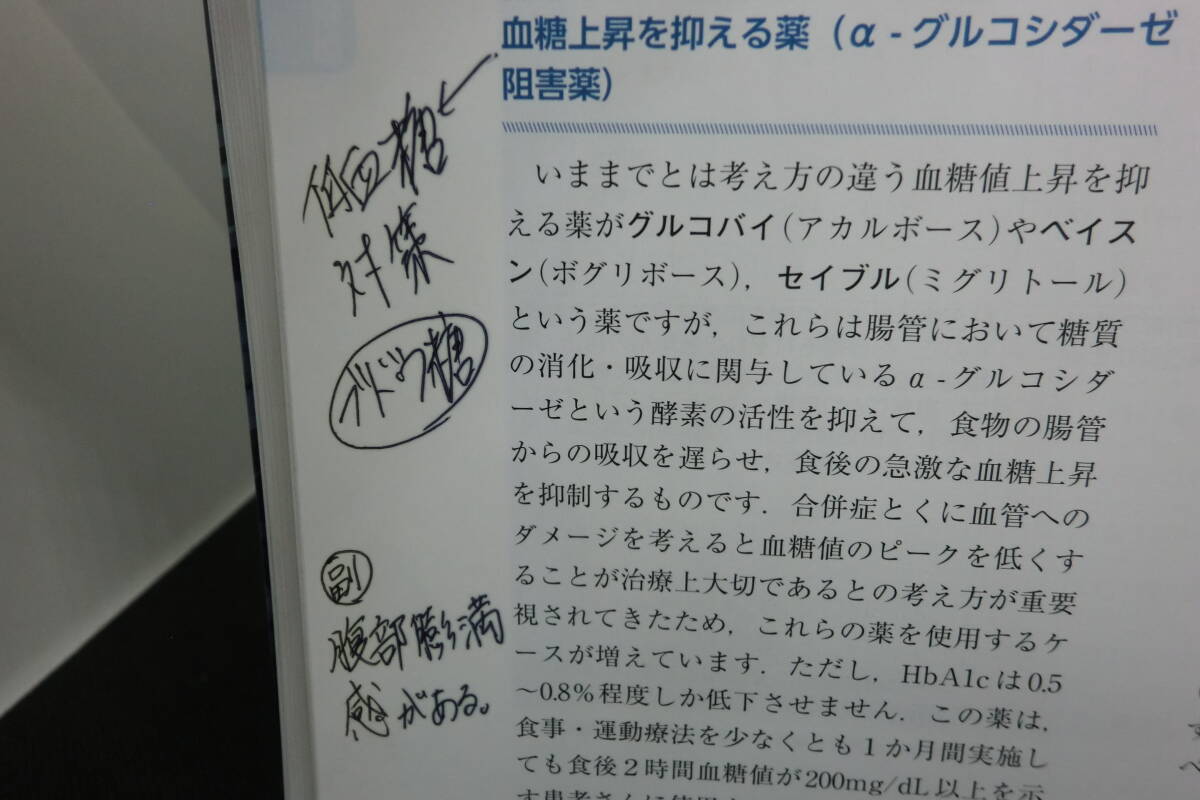 血糖上昇を抑える薬（α-グルコシダーゼ
阻害薬）
低血糖
対策
ブドウ糖
副
腹部膨満
感がある。
いままでとは考え方の違う血糖値上昇を抑
える薬がグルコバイ(アカルボース)やベイス
ン(ボグリボース)，セイブル(ミグリトール)
という薬ですが，これらは腸管において糖質
の消化・吸収に関与しているα-グルコシダ
ーゼという酵素の活性を抑えて，食物の腸管
からの吸収を遅らせ，食後の急激な血糖上昇
を抑制するものです．合併症とくに血管への
ダメージを考えると血糖値のピークを低くす
ることが治療上大切であるとの考え方が重要
視されてきたため，これらの薬を使用するケ
ースが増えています．ただし，HbA1cは0.5
～0.8%程度しか低下させません．この薬は，
食事・運動療法を少なくとも1か月間実施し
ても食後2時間血糖値が200mg/dL以上を示
す患者さんに使用